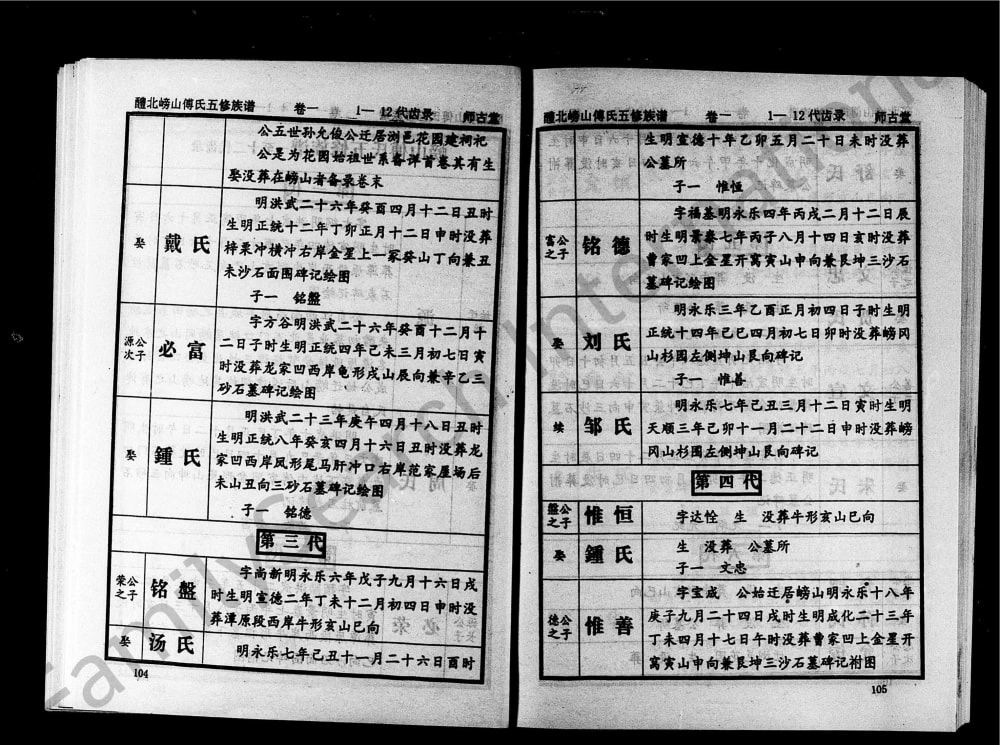 醴北崂山傅氏五修族谱 卷一 1—12代齿录 师古堂
公五世孙允俊公迁居浏邑花园建祠祀
公是为花园始祖世系备详首卷其有生
娶没葬在崂山者备录卷末
娶 戴氏
明洪武二十六年癸酉四月十二日丑时
生明正统十二年丁卯正月十二日申时没葬
梓栗冲横冲右岸金星上一家癸山丁向兼丑
未沙石面围碑记绘图
子一 铭盤
源公次子 必富
字方谷明洪武二十六年癸酉十二月十
二日子时生明正统四年己未三月初七日寅
时没葬龙家凹西岸龟形戌山辰向兼辛乙三
砂石墓碑记绘图
娶 鍾氏
明洪武二十三年庚午四月十八日丑时
生明正统八年癸亥四月十六日丑时没葬龙
家凹西岸凤形尾马肝冲口右岸范家屋场后
未山丑向三砂石墓碑记绘图
子一 铭德
第三代
荣公之子 铭盤
字尚新明永乐六年戊子九月十六日戌
时生明宣德二年丁未十二月初四日申时没
葬潭原段西岸牛形亥山巳向
娶 汤氏
明永乐七年己丑十一月二十六日酉时
104
醴北崂山傅氏五修族谱 卷一 1—12代齿录 师古堂
生明宣德十年乙卯五月二十日未时没葬
公墓所
子一 惟恒
富公之子 铭德
字福基明永乐四年丙戌二月十二日辰
时生明景泰七年丙子八月十四日亥时没葬
曹家凹上金星开窝寅山申向兼艮坤三沙石
墓碑记绘图
娶 刘氏
明永乐三年乙酉正月初四日子时生明
正统十四年己巳四月初七日卯时没葬崂冈
山杉围左侧坤山艮向碑记
子一 惟善
续 邹氏
明永乐七年己丑三月十二日寅时生明
天顺三年己卯十一月二十二日申时没葬崂
冈山杉围左侧坤山艮向碑记
第四代
盤公之子 惟恒
字达恮 生 没葬牛形亥山巳向
娶 鍾氏
生 没葬 公墓所
子一 文忠
德公之子 惟善
字宝成 公始迁居崂山明永乐十八年
庚子九月二十四日戌时生明成化二十三年
丁未四月十七日午时没葬曹家凹上金星开
窝寅山申向兼艮坤三沙石墓碑记祔图
105
FamilySearch International